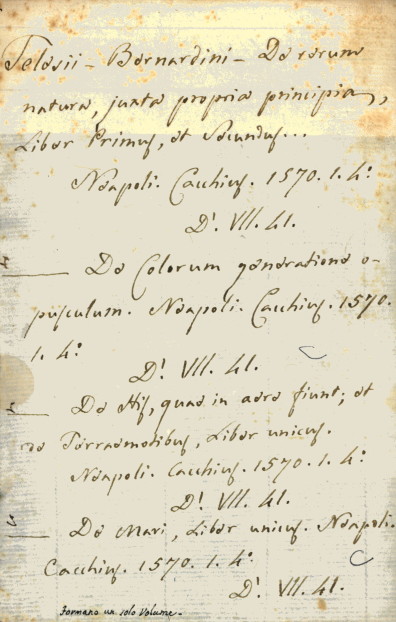 Telesii - Bernardini - De rerum
natura, juxta propria principia,
Liber Primus, et Secundus...
Neapoli. Cacchius. 1570. 1. 4º
D'. VII. 41.
— De Colorum generatione o-
pusculum. Neapoli. Cacchius. 1570.
1. 4º
D'. VII. 41.
— De His, quae in aere fiunt; et
de Terraemotibus, Liber unicus.
Neapoli. Cacchius. 1570. 1. 4º
D'. VII. 41.
— De Mari, Liber unicus. Neapoli.
Cacchius. 1570. 1. 4º
D'. VII. 41.
formano un solo Volume.